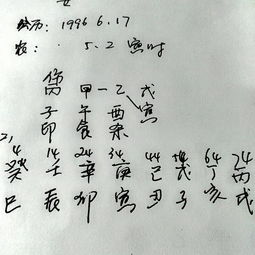 女
公历: 1996 6.17
农: . 5.2 寅时
伤
丙 甲一乙 戊
子 午 酉 寅
印 食 杀
4 14 24 34 44 54 64 74
癸 壬 辛 庚 己 戊 丁 丙
巳 辰 卯 寅 丑 子 亥 戌